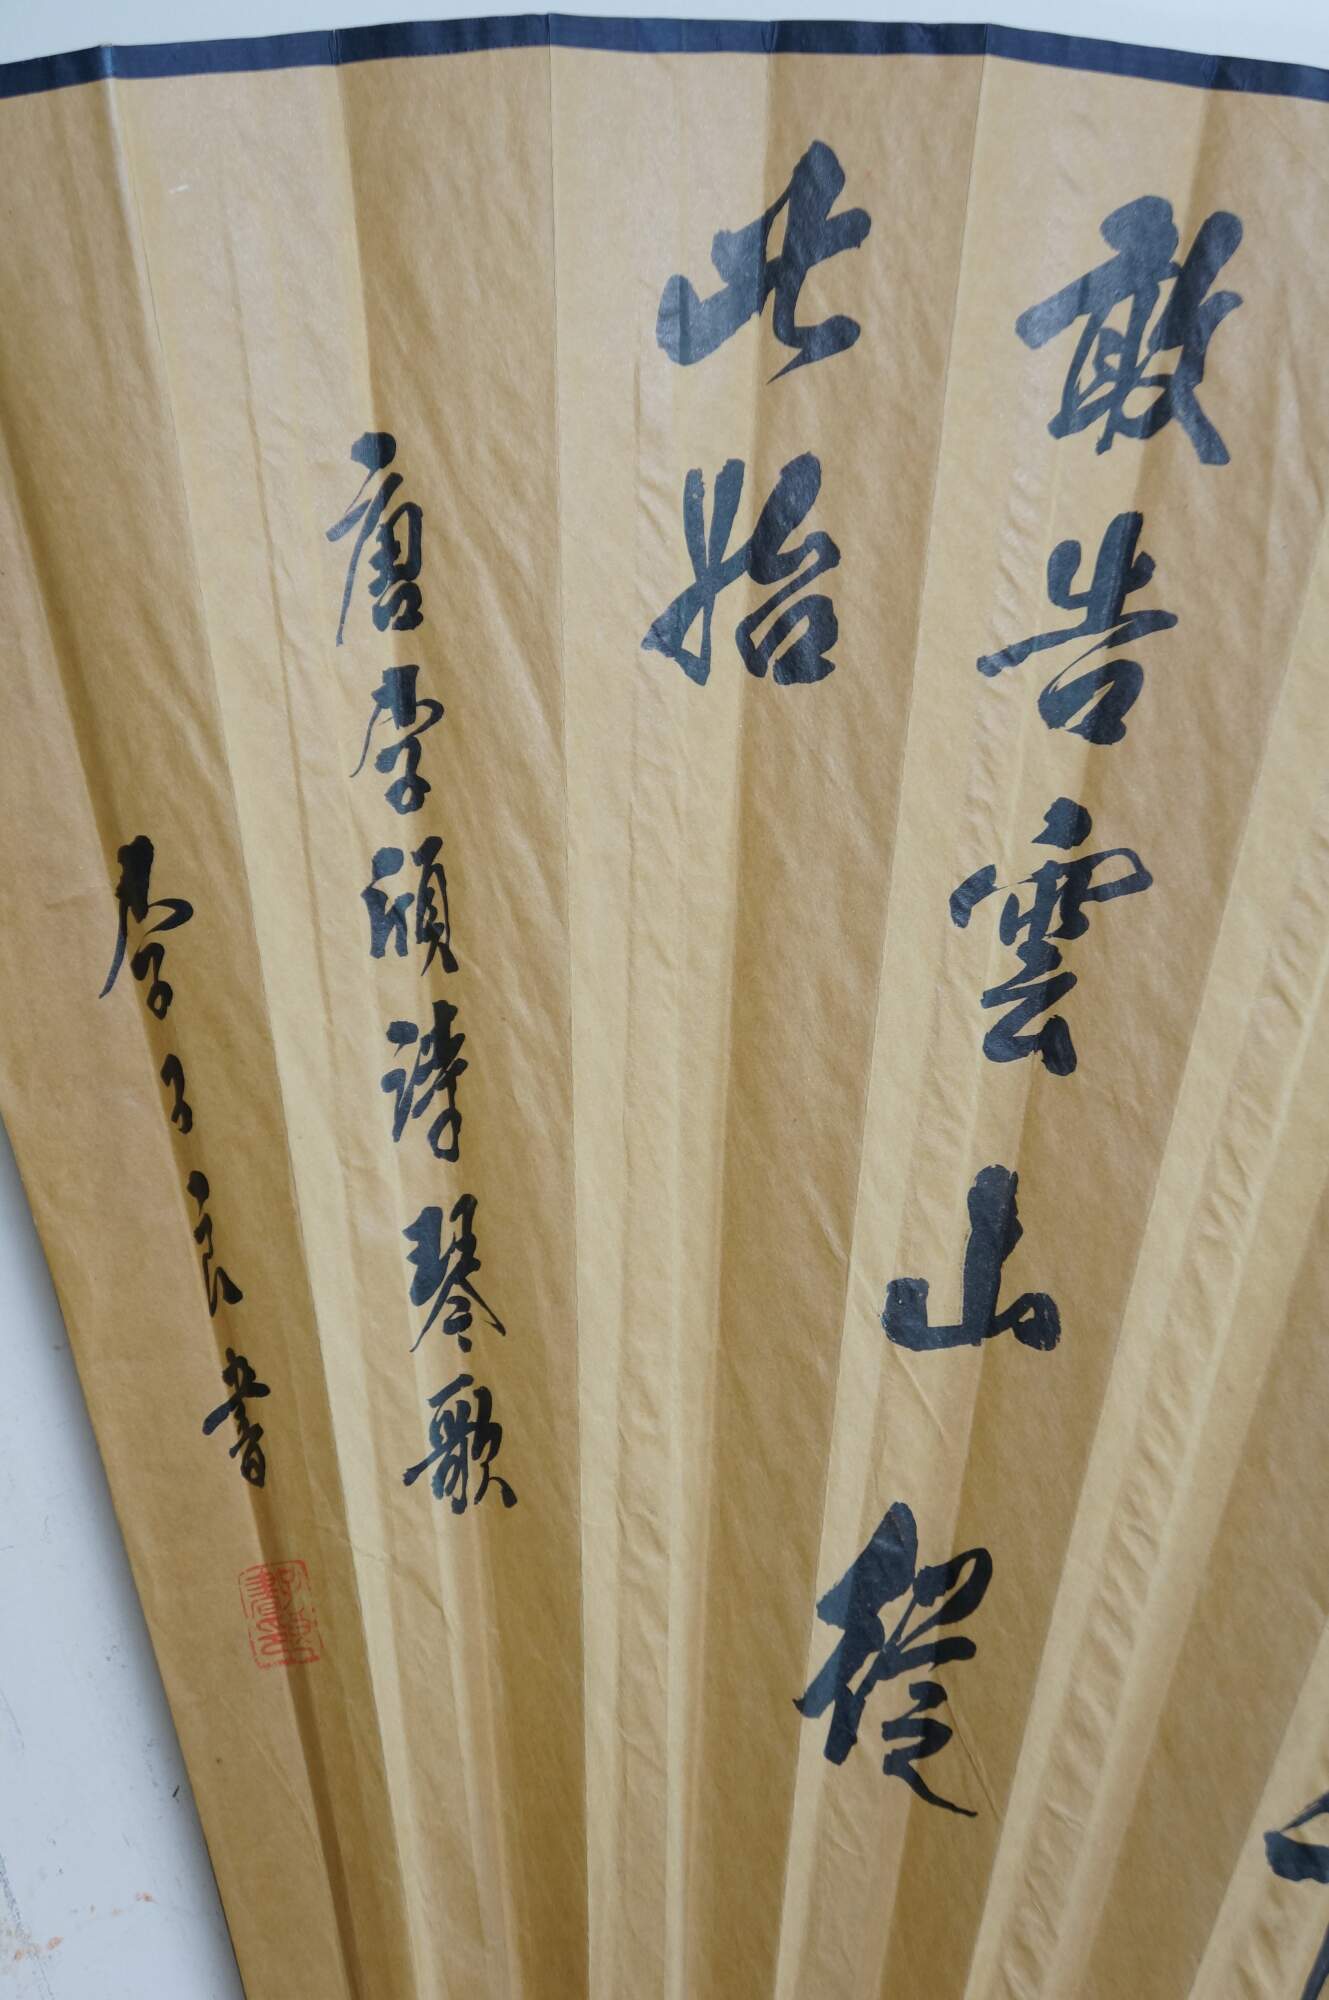 敢告雲山從
此始
唐李頎詩琴歌
李子良書